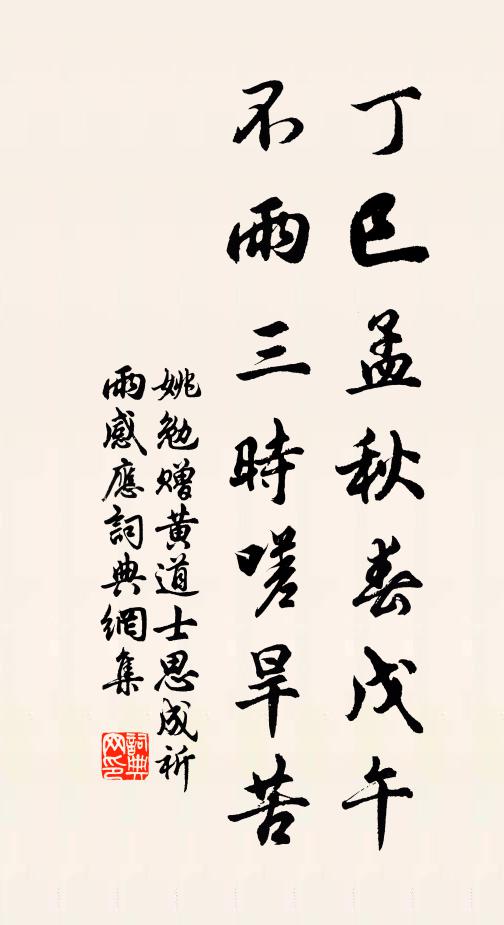 丁巳孟秋春戊午
不雨三時嗟旱苦
姚勉贈黃道士思成祈
雨感應詞典網集
詞典网印